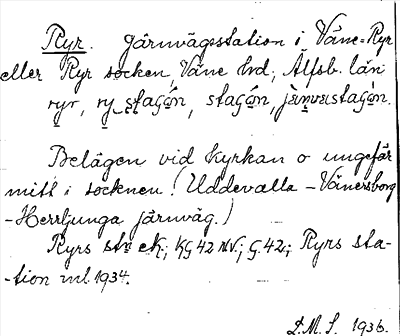 Ryr. Järnvägsstation i Väne-Ryr
eller Ryr socken, Väne hd; Älfsb. län
ryr, ry stagón, stagón, jä̀ṇvæistagón.
Belägen vid kyrkan o ungefär
mitt i socknen. (Uddevalla - Vänersborg
- Herrljunga järnväg.)
Ryrs st ek; KG 42 NV.; G. 42; Ryrs sta-
-tion ml. 1934.
L.M.S. 1936.